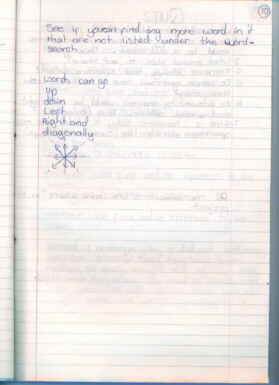 10
See if you can find any more word in it
that are not listed under the word-
search.
Words can go
up
down
Left
Right and
diagonally